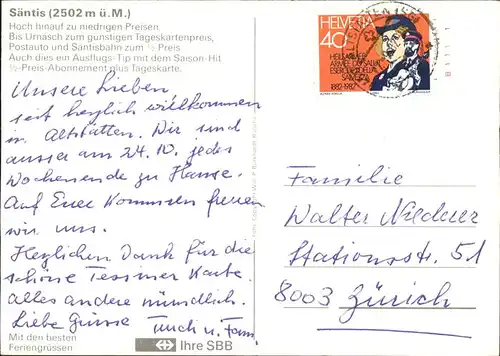 Säntis (2502 m ü. M.)
Hoch hinauf zu niedrigen Preisen.
Bis Umasch zum günstigen Tageskartenpreis,
Postauto und Säntisbahn zum ½-Preis
Auch dies ein Ausflugs-Tip mit dem Saison-Hit
½-Preis-Abonnement plus Tageskarte.
Unsere Lieben,
seit herzlich willkommen
in Altstätten. Wir sind
ausser am 24.10. jedes
Wochenende zu Hause.
Auf Euer Kommen freuen
wir uns.
Herzlichen Dank für die
schöne Tessiner Karte.
Alles andere mündlich.
Liebe Grüsse
u. Fam.
Mit den besten
Feriengrüssen
Ihre SBB
HELVETIA
40
HEILSARMEE
ARMÉE DU SALUT
1882-1982
Familie
Walter Niederer
Stationsstr. 51
8003 Zürich